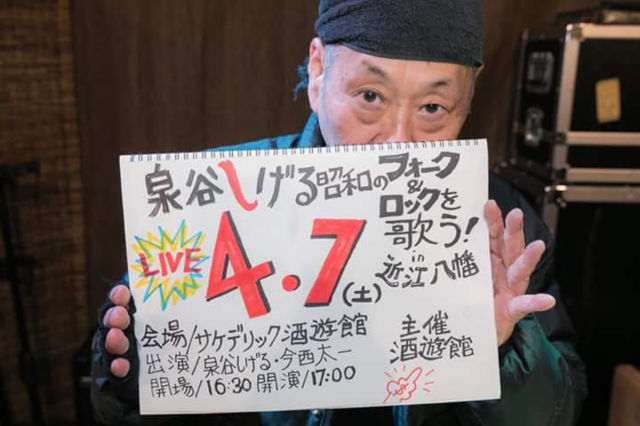 泉谷しげる昭和のフォーク
&
ロックを
歌う!
in
近江八幡
LIVE
4.7(土)
会場/サケデリック酒遊館
出演/泉谷しげる・今西太一
開場/16:30 開演/17:00
主催
酒遊館